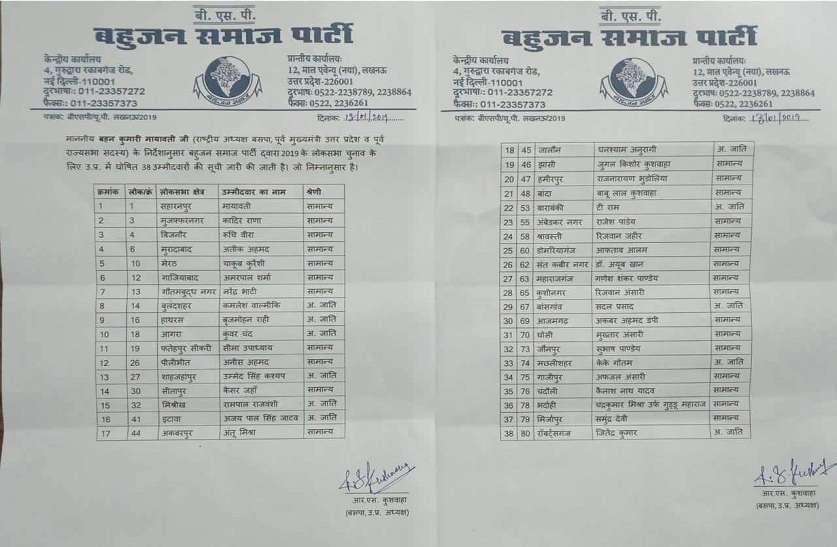 बी. एस. पी.
बहुजन समाज पार्टी
केन्द्रीय कार्यालय
4, गुरुद्वारा रकाबगंज रोड,
नई दिल्ली-110001
दूरभाषः 011-23357272
फैक्सः: 011-23357373
प्रान्तीय कार्यालयः
12, माल एवेन्यू (नया), लखनऊ
उत्तर प्रदेश-226001
दूरभाषः 0522-2238789, 2238864
फैक्सः 0522, 2236261
पत्रांक: बीएसपी/यू.पी. लखनऊ/2019
दिनांक: 13/01/2019
माननीय बहन कुमारी मायावती जी (राष्ट्रीय अध्यक्ष बसपा, पूर्व मुख्यमंत्री उत्तर प्रदेश व पूर्व
राज्यसभा सदस्य) के निर्देशानुसार बहुजन समाज पार्टी द्वारा 2019 के लोकसभा चुनाव के
लिए उ.प्र. में घोषित 38 उम्मीदवारों की सूची जारी की जाती है। जो निम्नसार है।
क्रमांक लोक/क्रं लोकसभा क्षेत्र उम्मीदवार का नाम श्रेणी
1 1 सहारनपुर मायावती सामान्य
2 3 मुजफ्फरनगर कादिर राणा सामान्य
3 4 बिजनौर रुचि वीरा सामान्य
4 6 मुरादाबाद अतीक अहमद सामान्य
5 10 मेरठ याकूब कुरैशी सामान्य
6 12 गाजियाबाद अमरपाल शर्मा सामान्य
7 13 गौतमबुद्ध नगर नरेंद्र भाटी सामान्य
8 14 बुलंदशहर कमलेश वाल्मीकि अ. जाति
9 16 हाथरस बृजमोहन राही अ. जाति
10 18 आगरा कुंवर चंद अ. जाति
11 19 फतेहपुर सीकरी सीमा उपाध्याय सामान्य
12 26 पीलीभीत अनीस अहमद सामान्य
13 27 शाहजहांपुर उम्मेद सिंह कश्यप अ. जाति
14 30 सीतापुर कैसर जहाँ सामान्य
15 32 मिश्रीख रामपाल राजवंशी अ. जाति
16 41 इटावा अजय पाल सिंह जाटव अ. जाति
17 44 अकबरपुर अंतू मिश्रा सामान्य
आर.एस. कुशवाहा
(बसपा, उ.प्र. अध्यक्ष)
बी. एस. पी.
बहुजन समाज पार्टी
केन्द्रीय कार्यालय
4, गुरुद्वारा रकाबगंज रोड,
नई दिल्ली-110001
दूरभाषः 011-23357272
फैक्सः: 011-23357373
प्रान्तीय कार्यालयः
12, माल एवेन्यू (नया), लखनऊ
उत्तर प्रदेश-226001
दूरभाषः 0522-2238789, 2238864
फैक्सः 0522, 2236261
पत्रांक: बीएसपी/यू.पी. लखनऊ/2019
दिनांक: 13/01/2019
18 45 जालौन घनश्याम अनुरागी अ. जाति
19 46 झांसी जुगल किशोर कुशवाहा सामान्य
20 47 हमीरपुर राजनारायण भुडोलिया सामान्य
21 48 बांदा बाबू लाल कुशवाहा सामान्य
22 53 बाराबंकी टी राम अ. जाति
23 55 अंबेडकर नगर राजेश पांडेय सामान्य
24 58 श्रावस्ती रिजवान जहीर सामान्य
25 60 डोमरियागंज आफताब आलम सामान्य
26 62 संत कबीर नगर डॉ. अयूब खान सामान्य
27 63 महाराजगंज गणेश शंकर पाण्डेय सामान्य
28 65 कुशीनगर रिजवान अंसारी सामान्य
29 67 बांसगांव सदल प्रसाद अ. जाति
30 69 आजमगढ़ अकबर अहमद डंपी सामान्य
31 70 घोसी मुख्तार अंसारी सामान्य
32 73 जौनपुर सुभाष पाण्डेय सामान्य
33 74 मछलीशहर केके गौतम अ. जाति
34 75 गाजीपुर अफजल अंसारी सामान्य
35 76 चंदौली कैलाश नाथ यादव सामान्य
36 78 भदोही चंद्रकुमार मिश्रा उर्फ गुड्डू महाराज सामान्य
37 79 मिर्जापुर समुंद्र देवी सामान्य
38 80 रॉबर्ट्सगंज जितेंद्र कुमार अ. जाति
आर.एस. कुशवाहा
(बसपा, उ.प्र. अध्यक्ष)